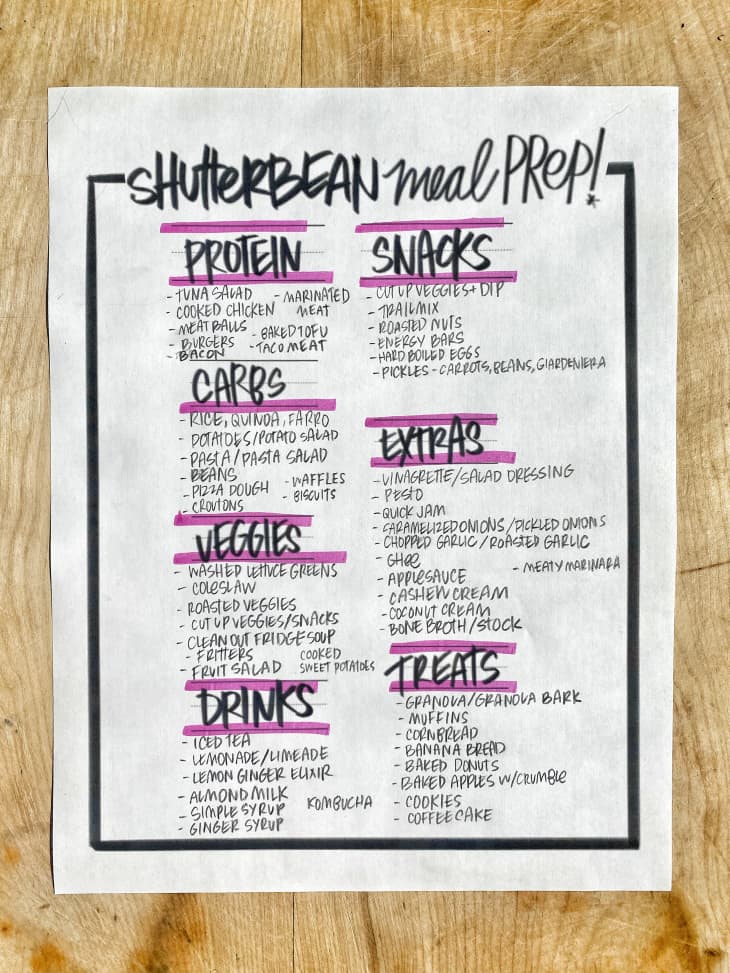 SHUTTERBEAN meal PREP!
PROTEIN
- TUNA SALAD
- COOKED CHICKEN
- MEATBALLS
- BURGERS
- BACON
- MARINATED
MEAT
- BAKED TOFU
- TACO MEAT
CARBS
- RICE, QUINOA, FARRO
- POTATOES/POTATO SALAD
- PASTA/PASTA SALAD
- BEANS
- PIZZA DOUGH
- CROUTONS
- WAFFLES
- BISCUITS
VEGGIES
- WASHED LETTUCE GREENS
- COLESLAW
- ROASTED VEGGIES
- CUT UP VEGGIES/SNACKS
- CLEAN OUT FRIDGE SOUP
- FRITTERS
- FRUIT SALAD
COOKED
SWEET POTATOES
DRINKS
- ICED TEA
- LEMONADE/LIMEADE
- LEMON GINGER ELIXIR
- ALMOND MILK
- SIMPLE SYRUP
- GINGER SYRUP
KOMBUCHA
SNACKS
- CUT UP VEGGIES + DIP
- TRAIL MIX
- ROASTED NUTS
- ENERGY BARS
- HARD BOILED EGGS
- PICKLES - CARROTS, BEANS, GIARDENIERA
EXTRAS
- VINAGRETTE/SALAD DRESSING
- PESTO
- QUICK JAM
- CARAMELIZED ONIONS/PICKLED ONIONS
- CHOPPED GARLIC/ROASTED GARLIC
- GHEE
- APPLESAUCE
- CASHEW CREAM
- COCONUT CREAM
- BONE BROTH/STOCK
- MEATY MARINARA
TREATS
- GRANOLA/GRANOLA BARK
- MUFFINS
- CORNBREAD
- BANANA BREAD
- BAKED DONUTS
- BAKED APPLES W/CRUMBLE
- COOKIES
- COFFEE CAKE